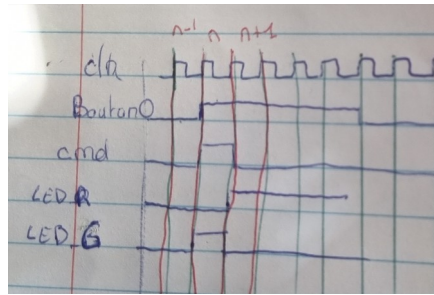 n-1 n n+1
clk
Bouton0
cmd
LED_R
LED_G